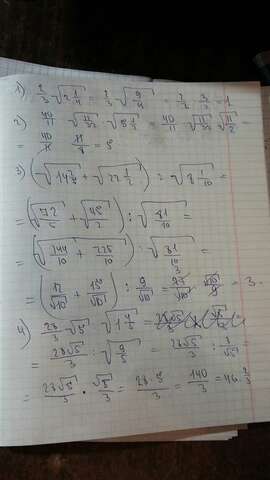 1) 2/3 √(2 1/4) = 2/3 · √(9/4) = 2/3 · 3/2 = 1
2) 40/11 √(11/32) · √(5 1/2) = 40/11 · √(11/32) · √(11/2) =
= 40/11 · 11/8 = 5
3) (√(14 2/5) + √(22 1/2)) : √(8 1/10) =
= (√(72/5) + √(45/2)) : √(81/10) =
= (√(144/10) + √(225/10)) : √(81/10) =
= (12/√10 + 15/√10) : 9/√10 = 27/√10 · √10/9 = 3.
4) 28/3 √5 : √(1 4/5) =
= 28√5/3 : √(9/5) = 28√5/3 : 3/√5 =
= 28√5/3 · √5/3 = 28·5/3 = 140/3 = 46 2/3